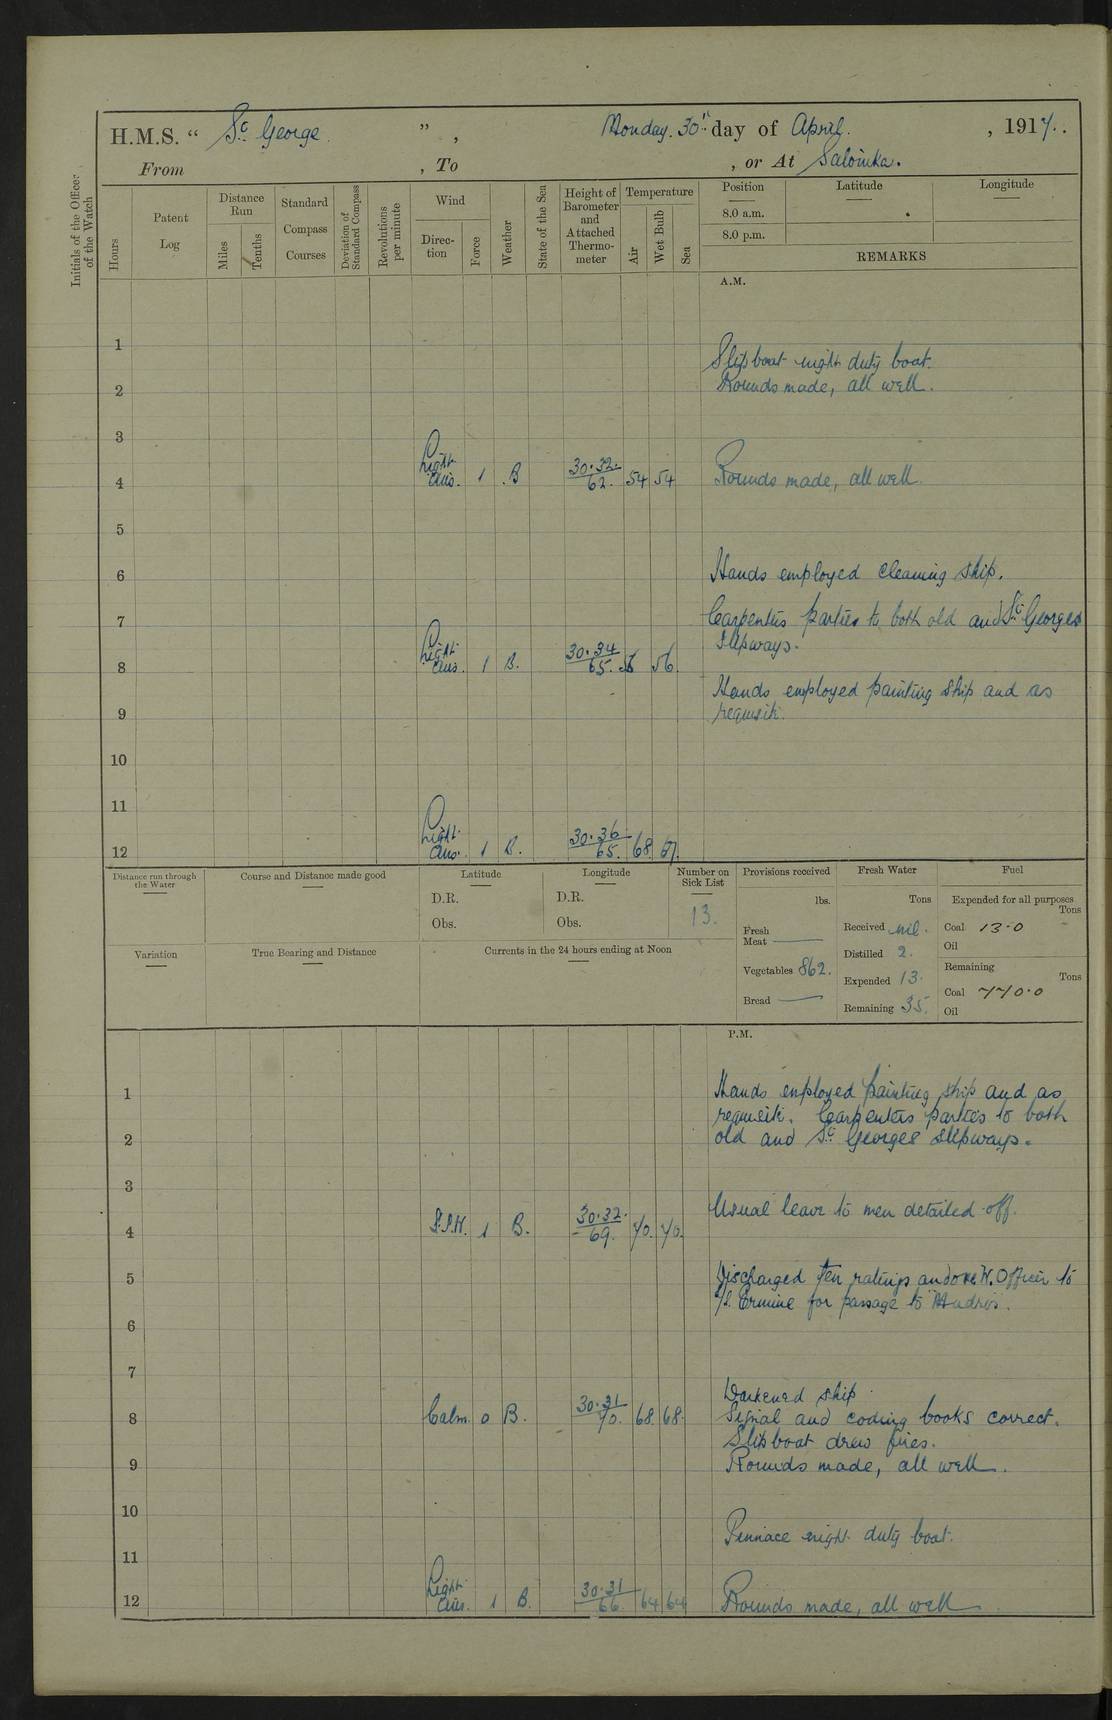 H.M.S. “ St. George. ” , Monday. 30th day of April. , 1917.
From , To , or At Salonika.
Initials of the Officer of the Watch
Hours
Patent Log
Distance Run
Miles
Tenths
Standard Compass Courses
Deviation of Standard Compass
Revolutions per minute
Wind
Direction
Force
Weather
State of the Sea
Height of Barometer and Attached Thermometer
Temperature
Air
Wet Bulb
Sea
Position Latitude Longitude
8.0 a.m.
8.0 p.m.
REMARKS
A.M.
1
Slip boat night duty boat.
2 Rounds made, all well.
3
4 Light airs. 1 B 30.32. 62. 54 54 Rounds made, all well.
5
6 Hands employed cleaning ship.
7 Carpenters parties to both old and St. Georges
Slipways.
8 Light airs. 1 B. 30.34 65. 56 56.
Hands employed painting ship and as
9 requisite.
10
11
12 Light airs. 1 B. 30.36 65. 68 67.
Distance run through the Water
Course and Distance made good
Latitude
D.R.
Obs.
Longitude
D.R.
Obs.
Number on Sick List
13.
Provisions received
lbs.
Fresh Meat
Vegetables 862.
Bread
Fresh Water
Tons
Received nil.
Distilled 2.
Expended 13.
Remaining 35.
Fuel
Expended for all purposes
Tons
Coal 13.0
Oil
Remaining
Tons
Coal 770.0
Oil
Variation
True Bearing and Distance
Currents in the 24 hours ending at Noon
P.M.
1 Hands employed painting ship and as
requisite. Carpenters parties to both
2 old and St. Georges Slipways.
3
Usual leave to men detailed off.
4 1 B. 30.32. 69. 70. 70.
5 Discharged ten ratings and one W. Officer to
S. Ermine for passage to "Mudros".
6
7
Darkened ship.
8 Calm 0 B. 30.31 70. 68. 68. Signal and coding books correct.
Slip boat drew fires.
9 Rounds made, all well.
10
Pinnace night duty boat.
11
12 Light airs. 1 B. 30.31 66. 64 64 Rounds made, all well